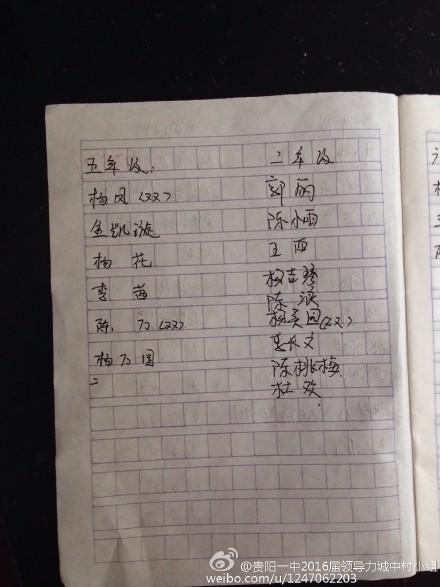 五年级:
杨凤(双)
金凯漩
杨 花
李 茜
陈 万(双)
杨万国
二年级
郭 丽
陈小雨
王 西
杨吉琴
陈 浪
杨美 (双)
李长文
陈桃梅
杜 欢
@贵阳一中2016届领导力城中村小组
weibo.com/u/1247062203